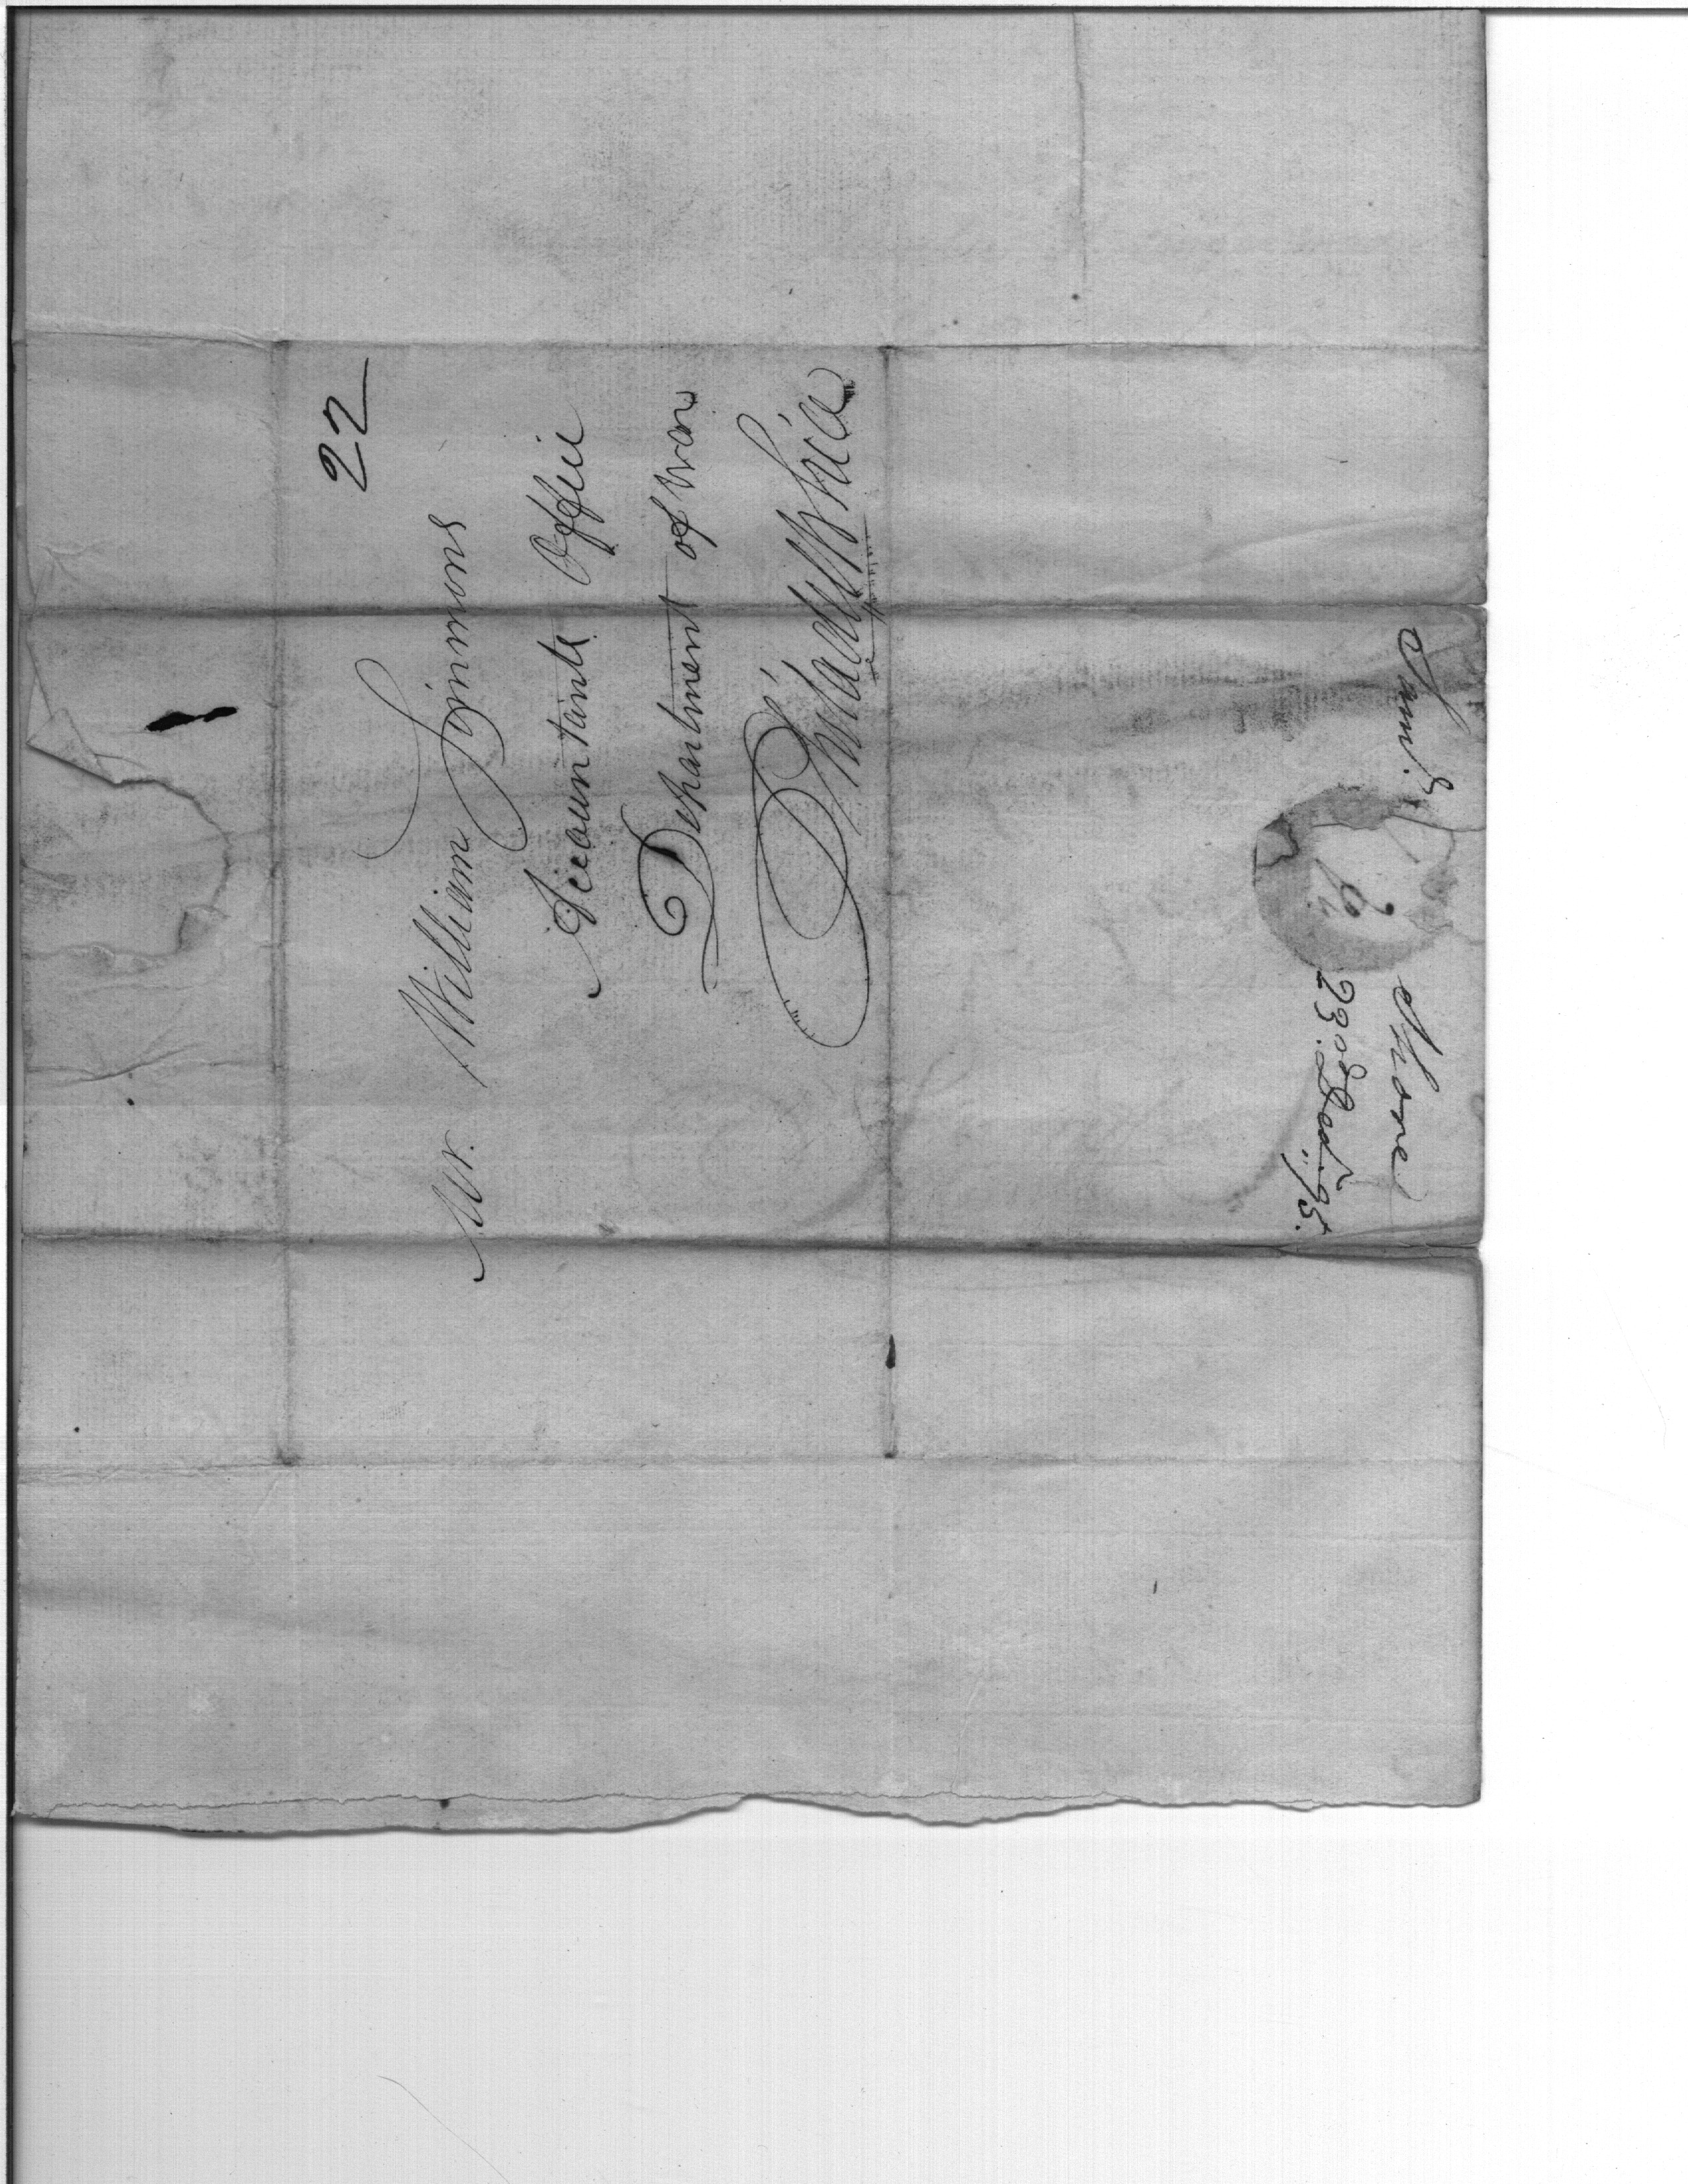 22
Mr. William Simmons
Accountants Office
Department of War
Philadelphia
Saml.
Shore
23rd. Decr. 95.